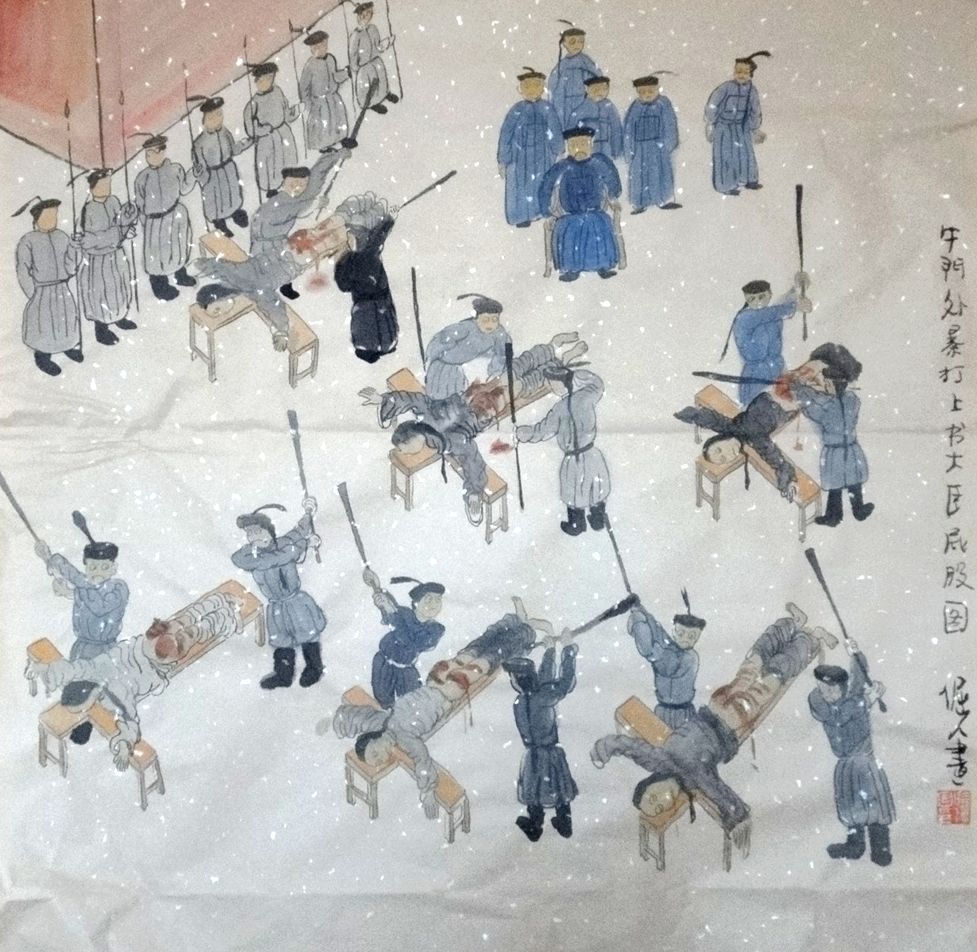 午門外暴打上书大臣屁股图
倔人畫